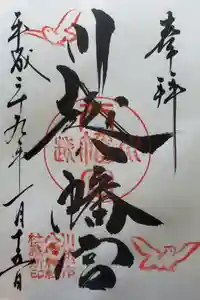 奉拝
川越八幡宮
平成二十九年一月十五日